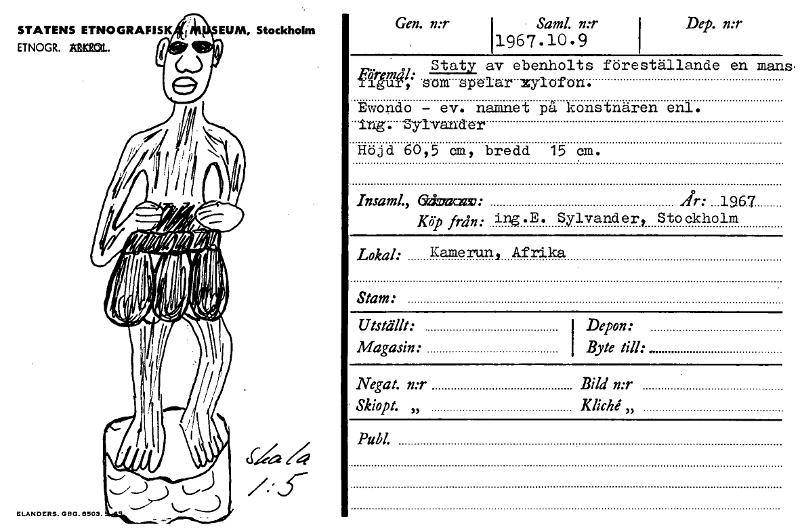 STATENS ETNOGRAFISKA MUSEUM, Stockholm
ETNOGR. ARKEOL.
Gen. n:r Saml. n:r Dep. n:r
1967.10.9
Föremål: Staty av ebenholts föreställande en mans-
figur, som spelar xylofon.
Ewondo - ev. namnet på konstnären enl.
ing. Sylvander
Höjd 60,5 cm, bredd 15 cm.
Insaml., Gåva av: År: 1967
Köp från: ing.E. Sylvander, Stockholm
Lokal: Kamerun, Afrika
Stam:
Utställt: Depon:
Magasin: Byte till:
Negat. n:r Bild n:r
Skiopt. „ Kliché „
Publ.
skala
1:5
ELANDERS. GBG. 6503.